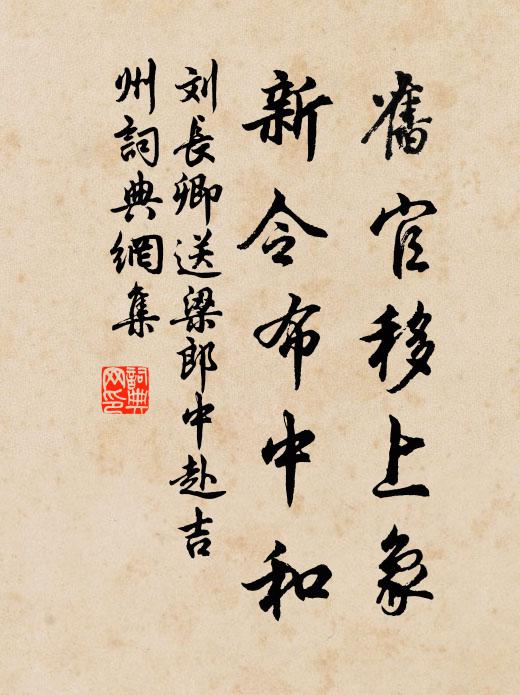 舊官移上象
新令布中和
刘長卿送梁郎中赴吉
州詞典網集
詞典
网印